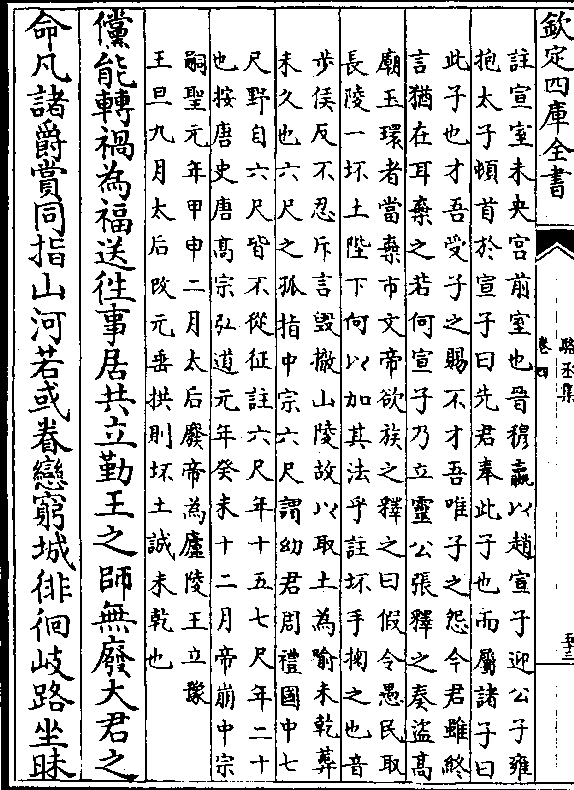 欽定四庫全書
駱丞集
卷四
五十三
註宣室未央宮前室也晉穆嬴以趙宣子迎公子雍
抱太子頓首於宣子曰先君奉此子也而屬諸子曰
此子也才吾受子之賜不才吾唯子之怨今君雖終
言猶在耳棄之若何宣子乃立靈公張釋之奏盜高
廟玉環者當棄市文帝欲族之釋之曰假令愚民取
長陵一坏土陛下何以加其法乎註坏手掬之也音
步侯反不忍斥言毀撤山陵故以取土為喻未乾葬
未久也六尺之孤指中宗六尺謂幼君周禮國中七
尺野自六尺皆不從征註六尺年十五七尺年二十
也按唐史唐髙宗弘道元年癸未十二月帝崩中宗
嗣聖元年甲申二月太后廢帝為廬陵王立豫
王旦九月太后改元垂拱則坏土誠未乾也
儻能轉禍為福送徃事居共立勤王之師無廢大君之
命凡諸爵賞同指山河若或眷戀窮城徘徊岐路坐昧